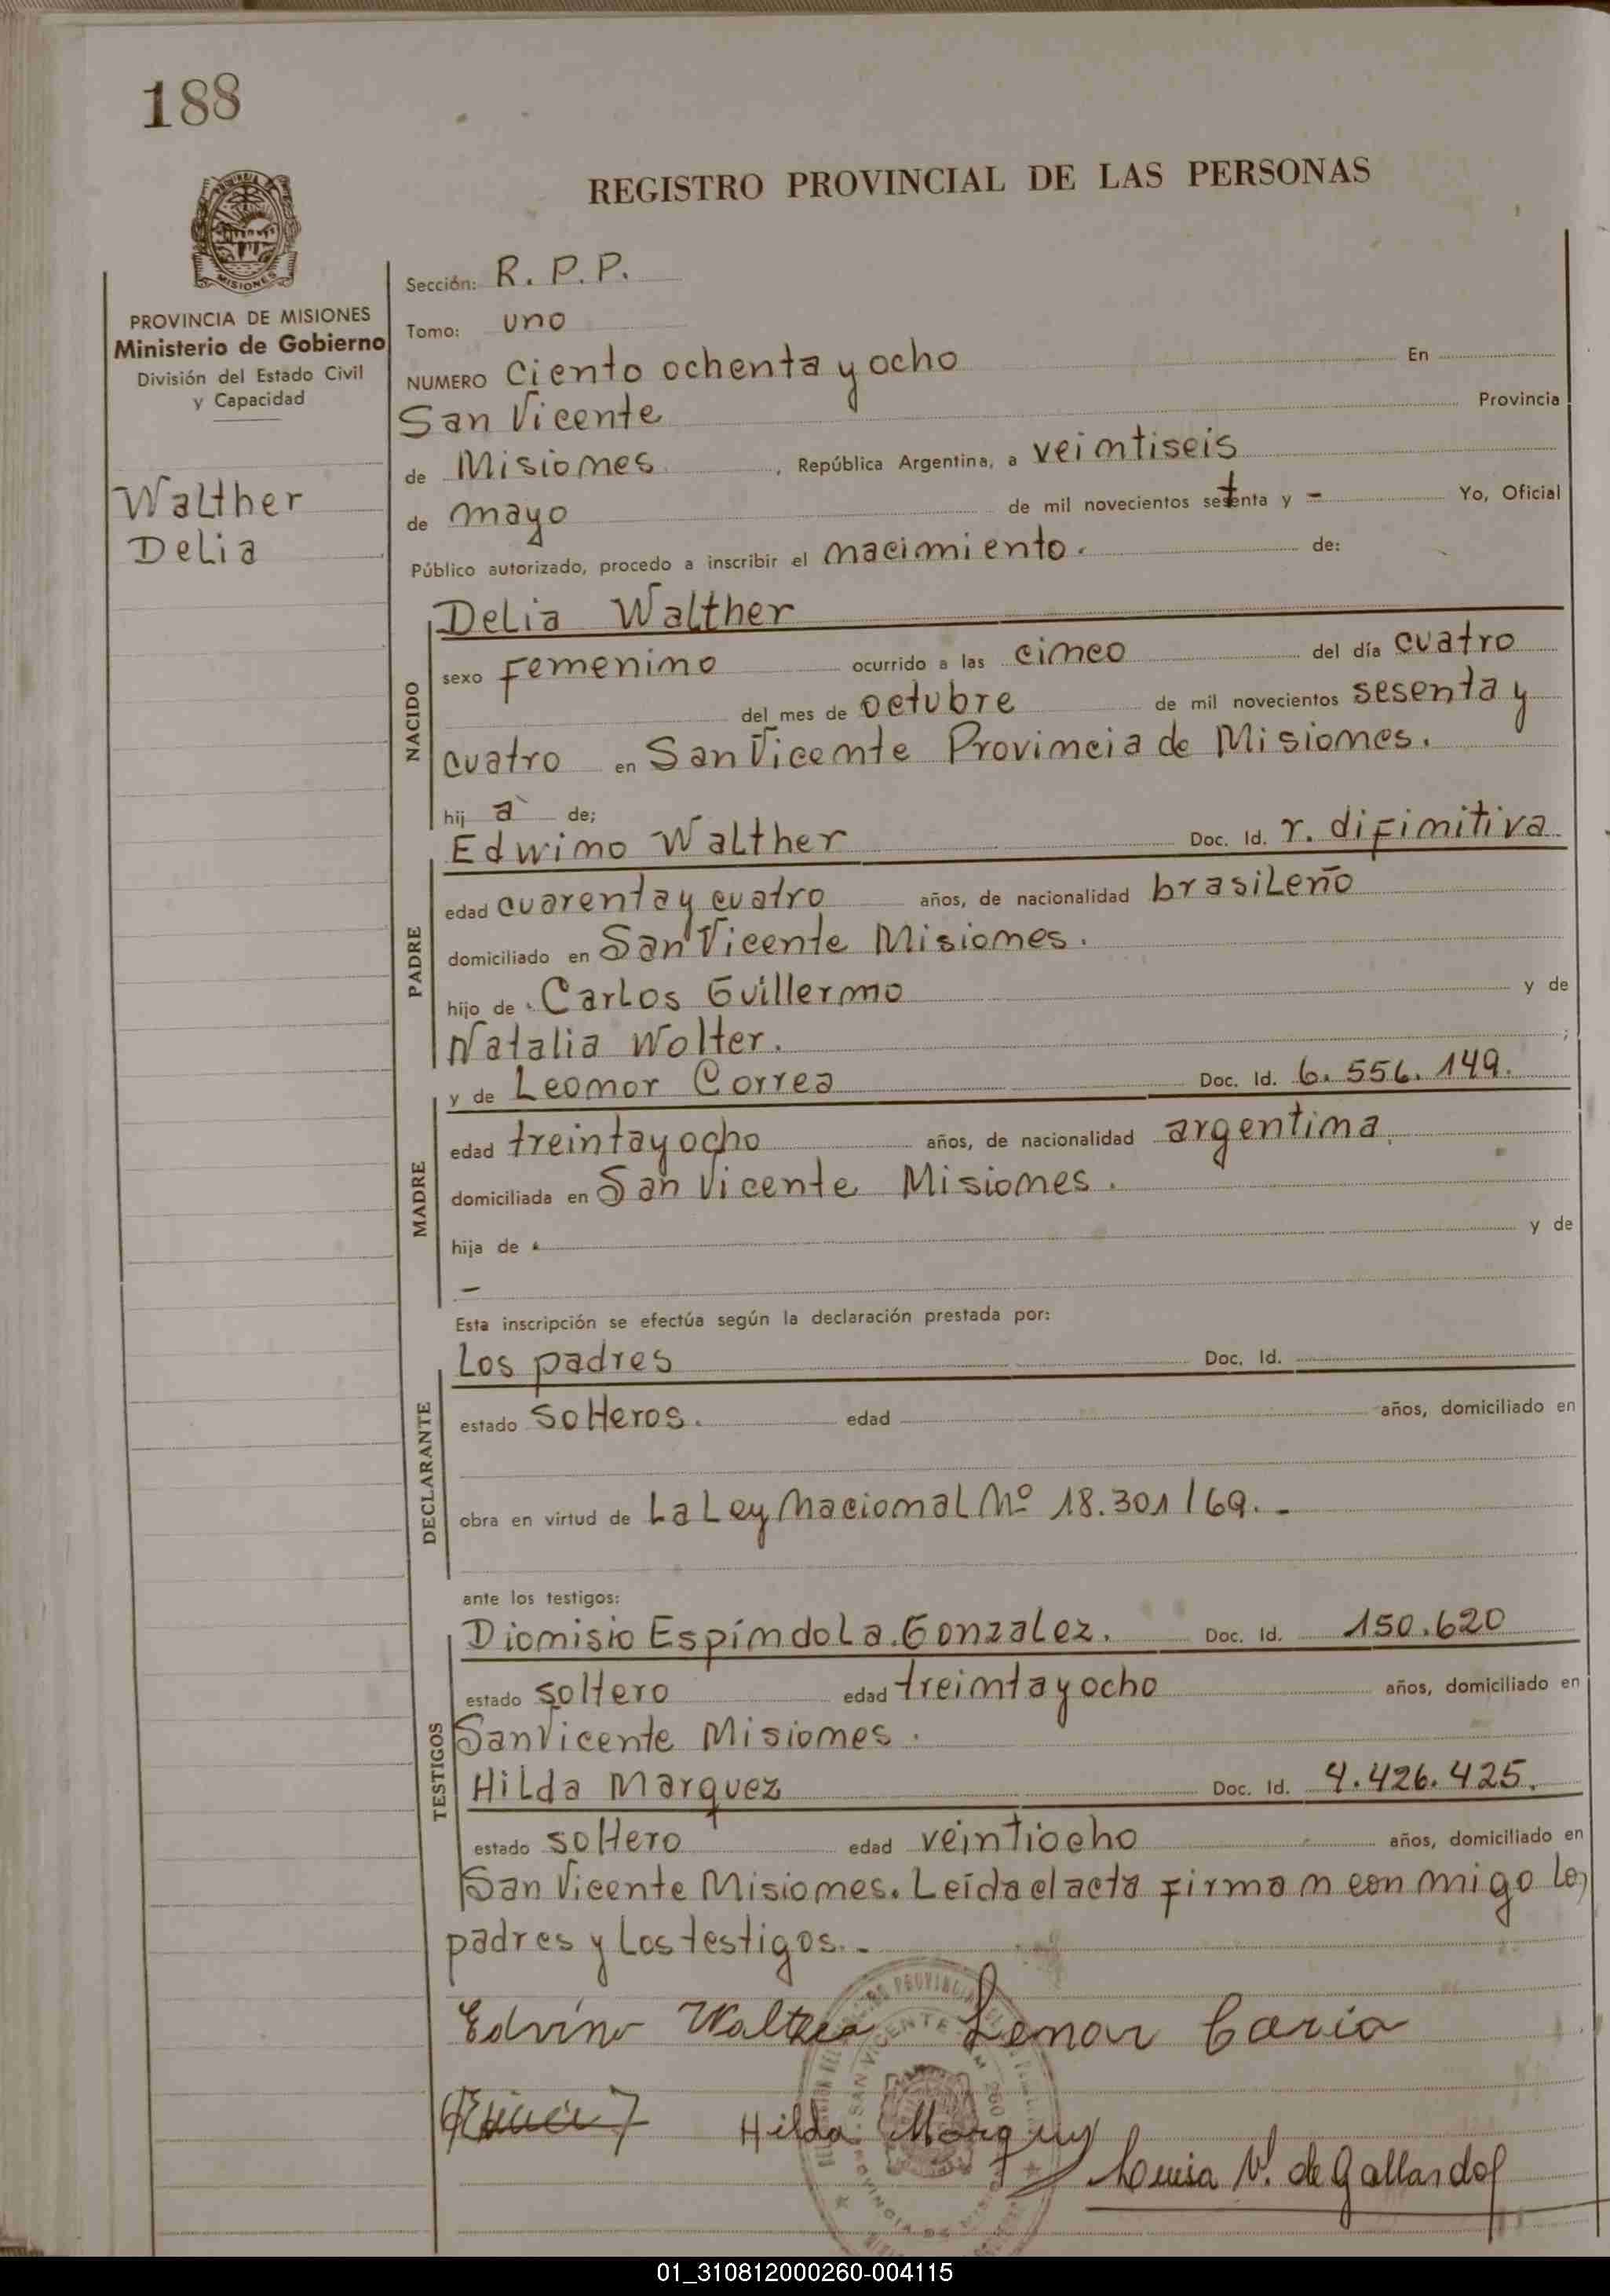 188
REGISTRO PROVINCIAL DE LAS PERSONAS
MISIONES
PROVINCIA DE MISIONES
Ministerio de Gobierno
División del Estado Civil
y Capacidad
Walther
Delia
Sección: R. P. P.
Tomo: uno
NUMERO Ciento ochenta y ocho En
San Vicente Provincia
de Misiones , República Argentina, a veintiseis
de mayo de mil novecientos setenta y - Yo, Oficial
Público autorizado, procedo a inscribir el nacimiento. de:
NACIDO
Delia Walther
sexo femenino ocurrido a las cinco del día cuatro
del mes de octubre de mil novecientos sesenta y
cuatro en San Vicente Provincia de Misiones.
hij a de;
PADRE
Edwino Walther Doc. Id. r. difinitiva
edad cuarenta y cuatro años, de nacionalidad brasileño
domiciliado en San Vicente Misiones.
hijo de Carlos Guillermo y de
Natalia Wolter. ;
MADRE
y de Leonor Correa Doc. Id. 6.556.149.
edad treinta y ocho años, de nacionalidad argentina.
domiciliada en San Vicente Misiones.
hija de y de
-
Esta inscripción se efectúa según la declaración prestada por:
DECLARANTE
Los padres Doc. Id.
estado solteros. edad años, domiciliado en
obra en virtud de La Ley Nacional Nº 18.301/69.-
ante los testigos:
TESTIGOS
Dionisio Espíndola Gonzalez. Doc. Id. 150.620
estado soltero edad treinta y ocho años, domiciliado en
San Vicente Misiones.
Hilda Marquez Doc. Id. 4.426.425.
estado soltero edad veintiocho años, domiciliado en
San Vicente Misiones. Leída el acta firman con migo los
padres y los testigos.-
Hilda Marquez
Luisa V. de Gallardo
01_310812000260-004115